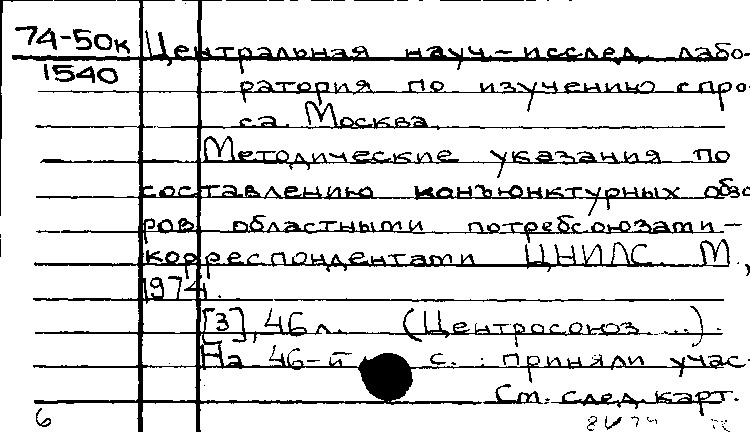 74-50к Центральная науч-исслед. лабо-
1540
ратория по изучению спро-
са. Москва.
Методические указания по
составлению конъюнктурных обзо
ров областными потребсоюзами-
корреспондентами ЦНИЛС. М.,
1974.
[3], 46 л. (Центросоюз ...).
На 46-й с.: приняли учас-
См. след. карт.
6